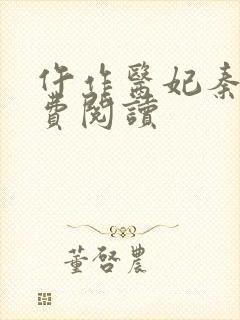 仵作醫妃秦
費閱讀
董啓農